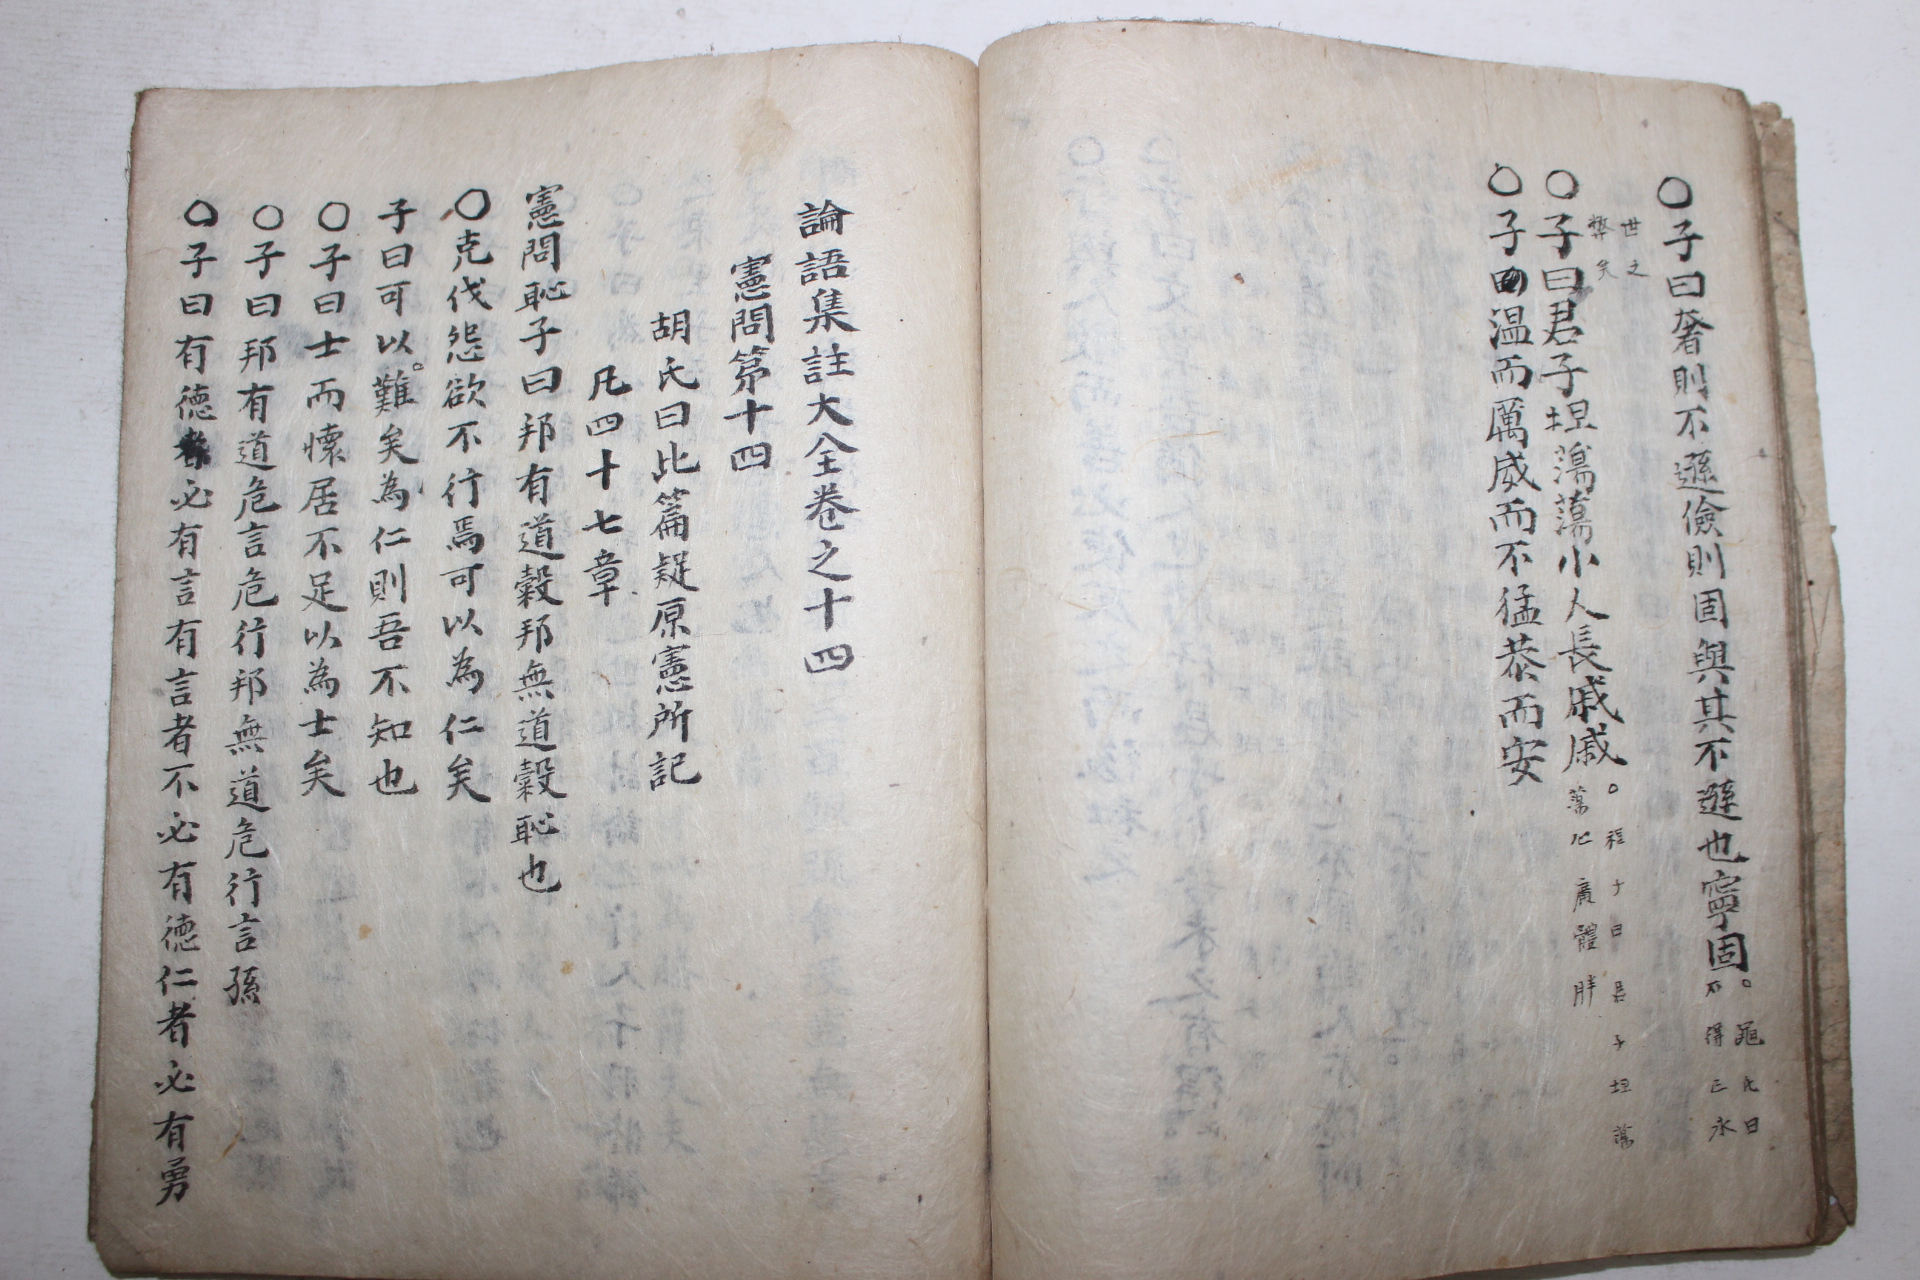 ○子曰奢則不遜儉則固與其不遜也寧固。
氏曰
不得已永
世之
弊矣
○子曰君子坦蕩蕩小人長戚戚
○程子曰君子坦蕩
蕩心廣體胖
○子曰温而厲威而不猛恭而安
論語集註大全卷之十四
憲問第十四
胡氏曰此篇疑原憲所記
凡四十七章
憲問恥子曰邦有道穀邦無道穀恥也
○克伐怨欲不行焉可以為仁矣
子曰可以。難矣為仁則吾不知也
○子曰士而懷居不足以為士矣
○子曰邦有道危言危行邦無道危行言孫
○子曰有徳者必有言有言者不必有徳仁者必有勇